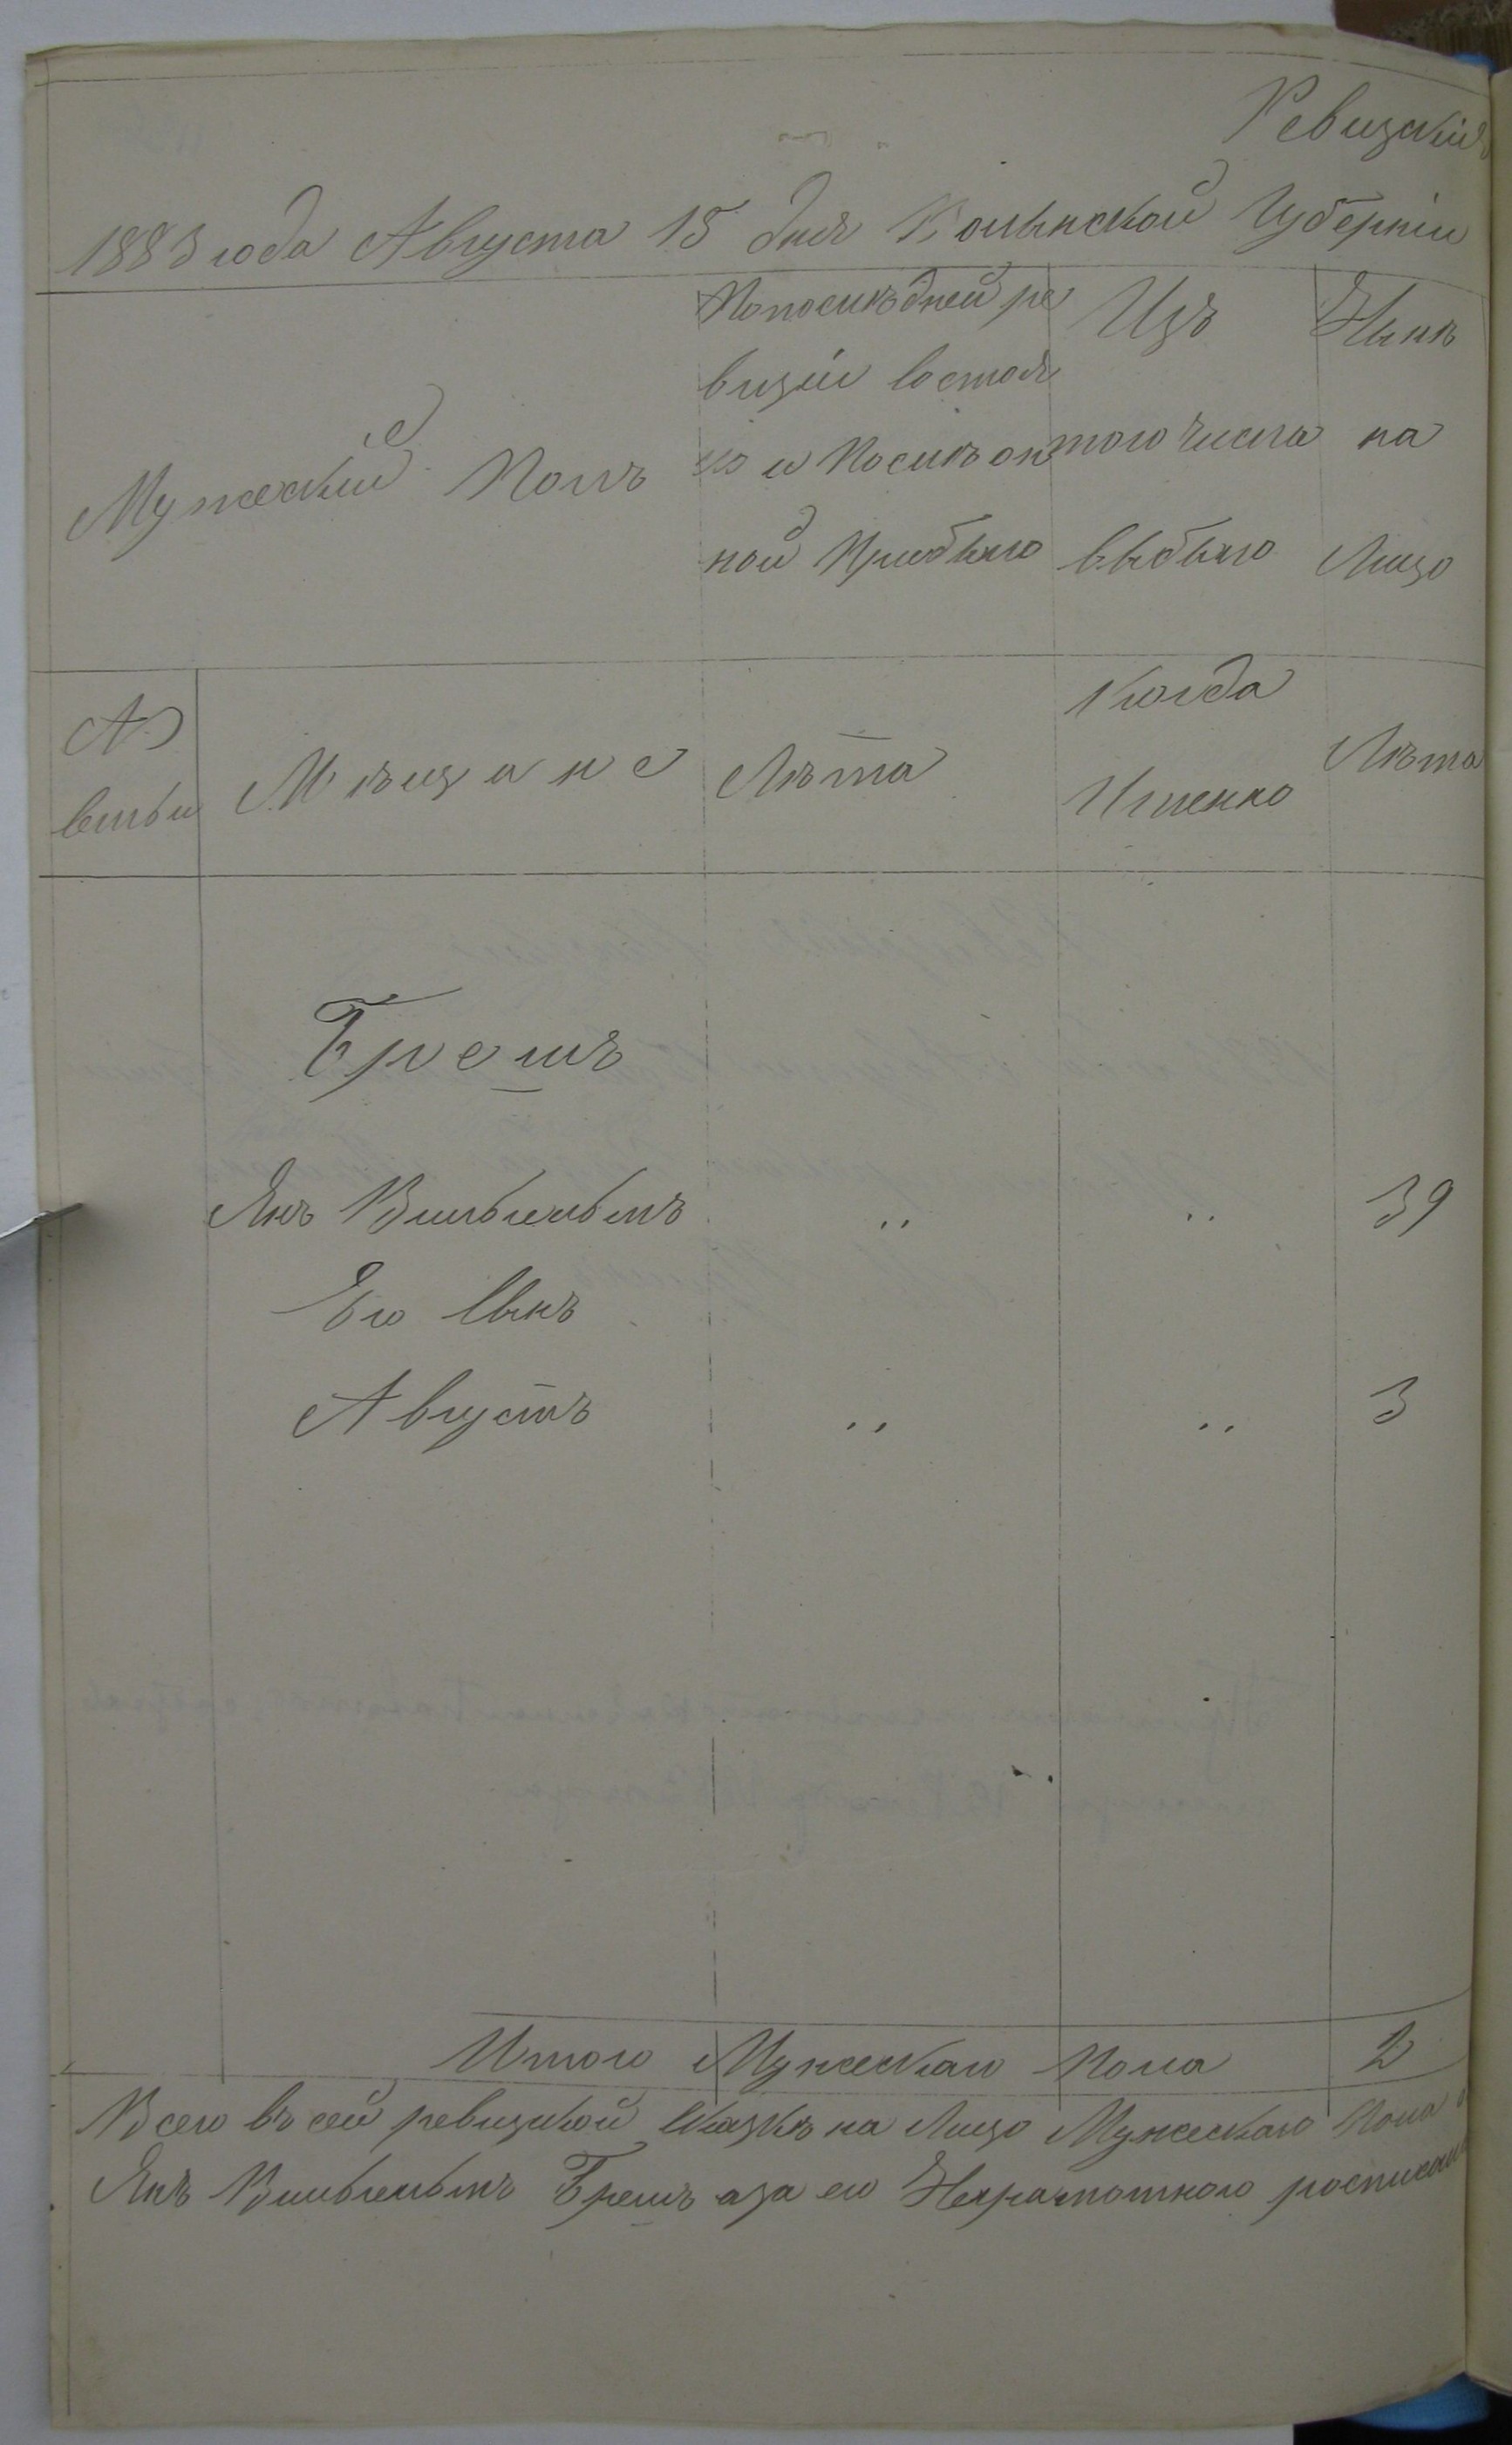 Ревизскія
1883 года Августа 15 дня Волынской Губерніи
Мужескій Полъ
По послѣдней ре
визіи состоя
ло и Послѣ он
ной Прибыло
Изъ
того числа
выбыло
Нынѣ
на
Лицо
№
семьи
Мѣщане
Лѣта
Когда
Именно
Лѣта
Брешъ
Янъ Вильгельмъ „ „ 39
Его Сынъ
Августъ „ „ 3
Итого Мужескаго Пола 2
Всего въ сей ревизской Сказкѣ на Лицо Мужескаго Пола
Янъ Вильгельмъ Брешъ а за его Неграмотного